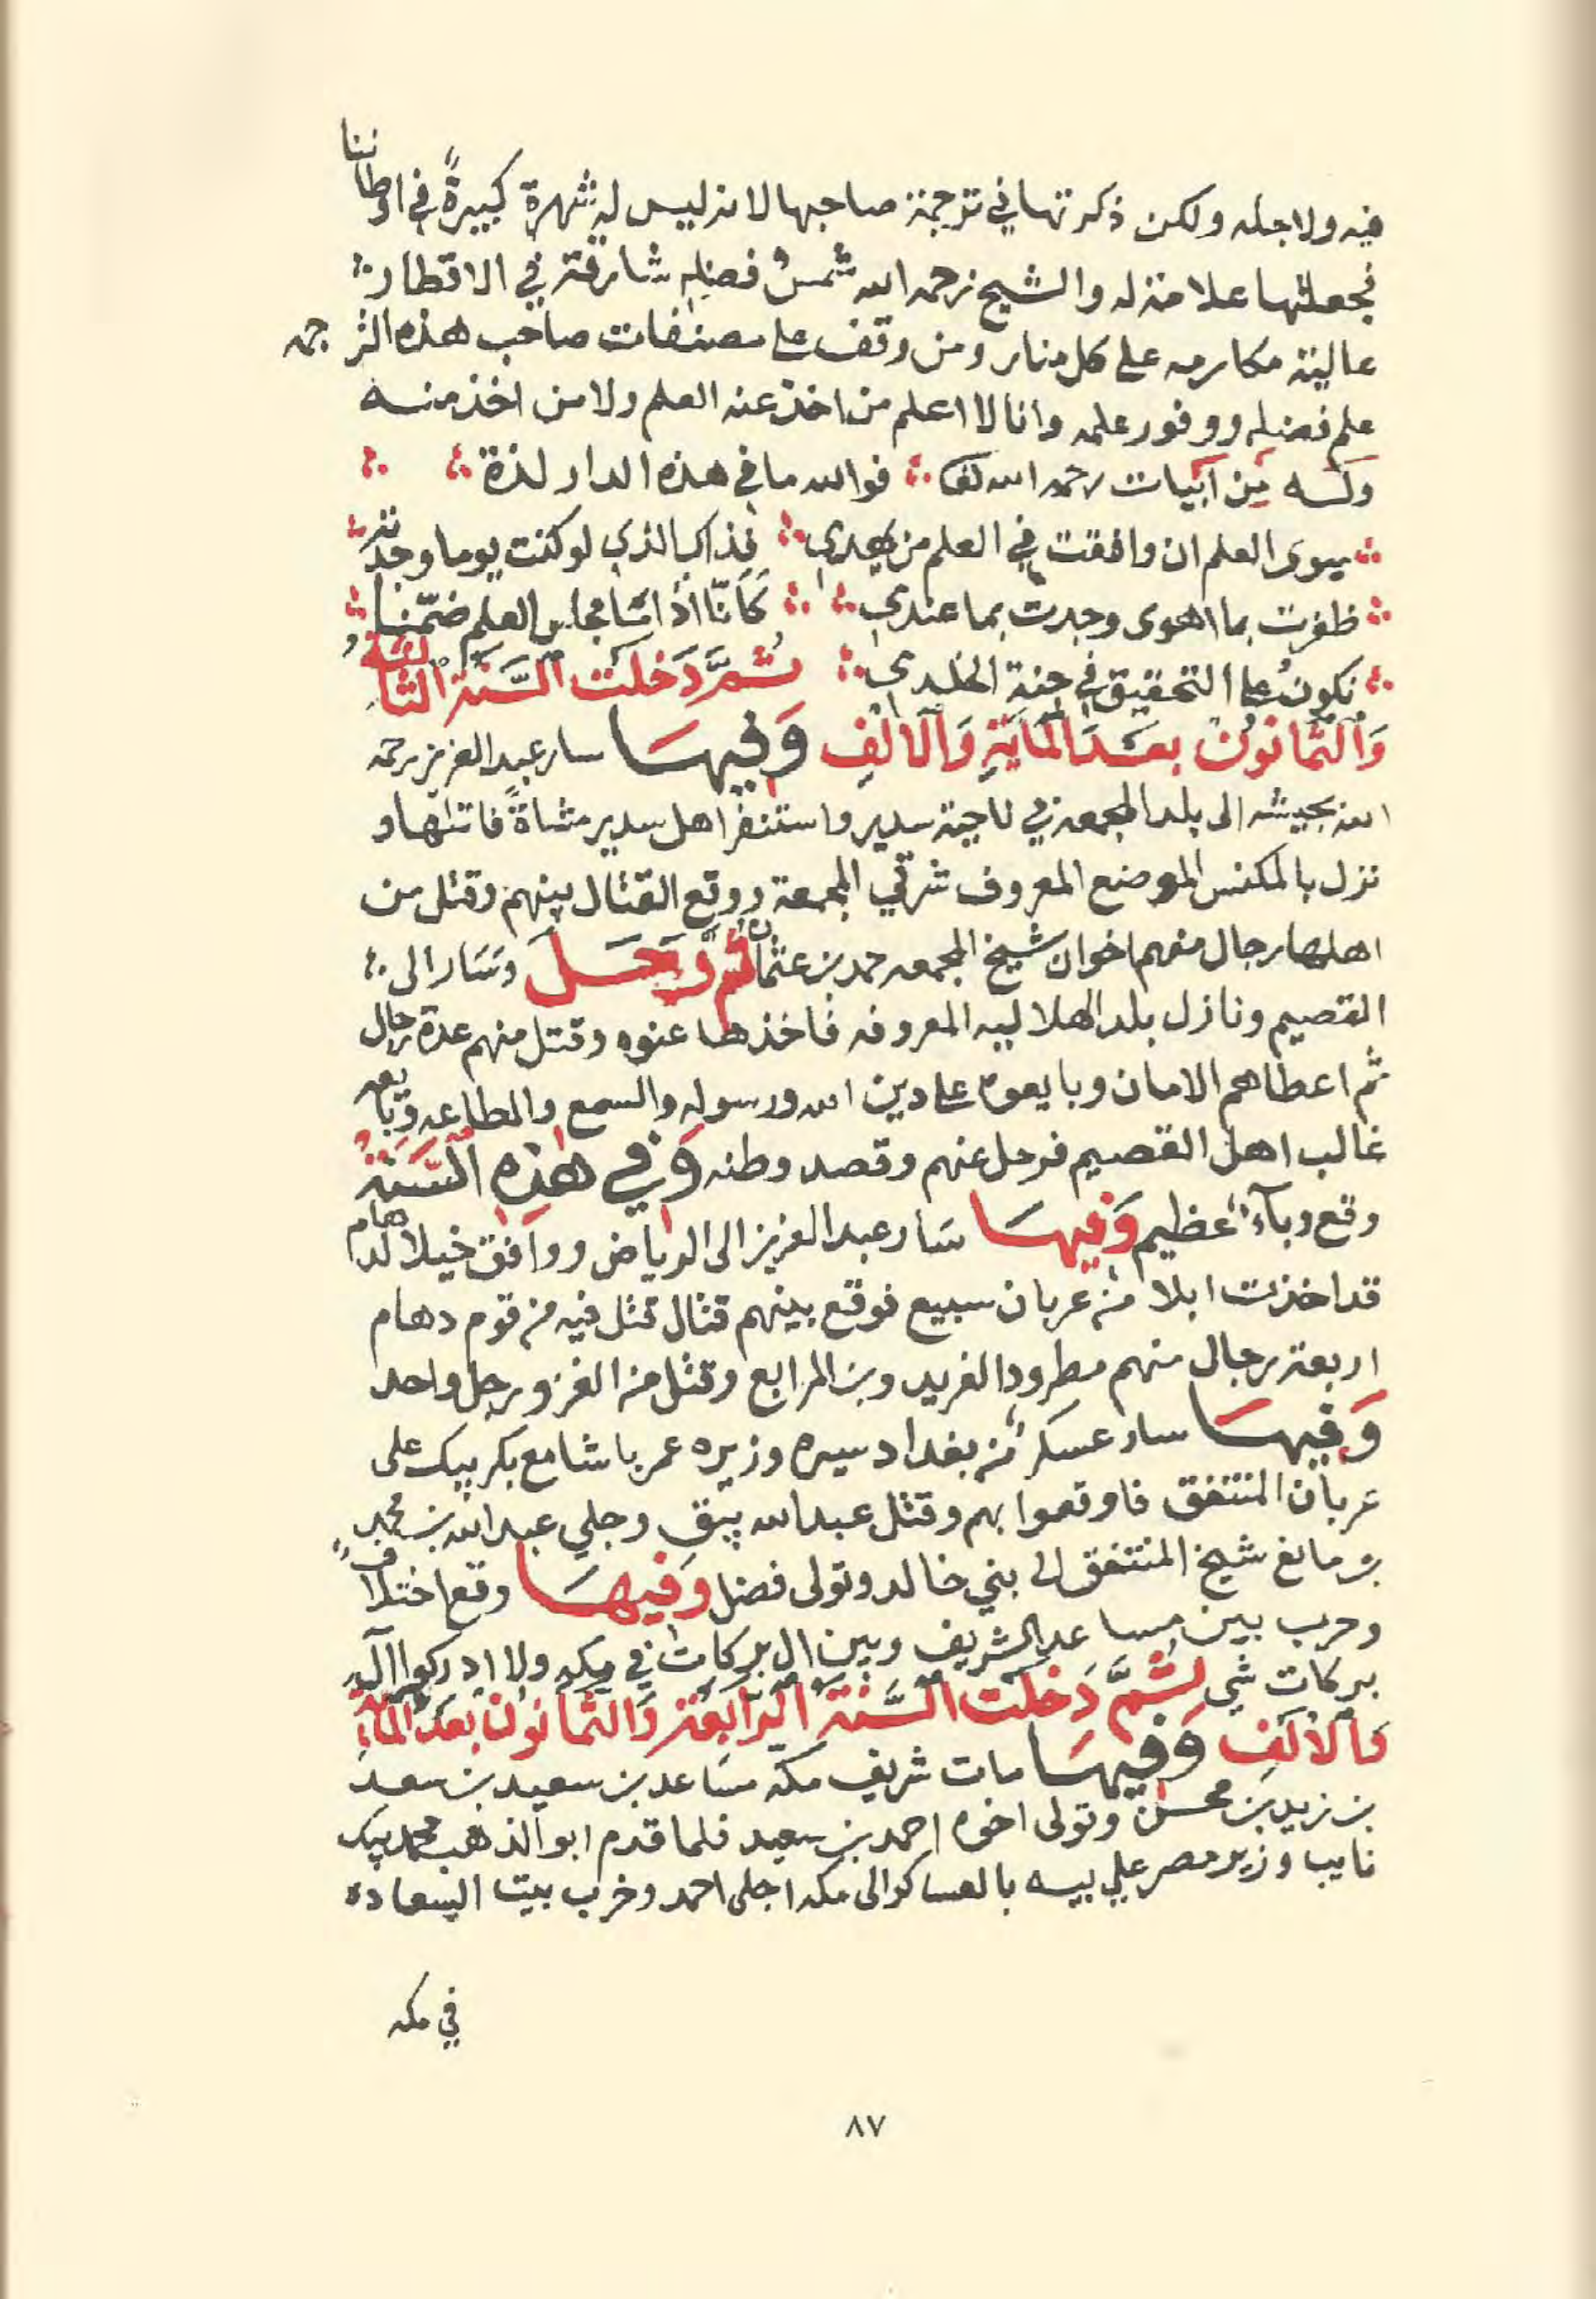 فيه ولاجله ولكن ذكرتها في ترجمة صاحبها لانه ليس له شهرة كبيرةً في اوطاننا
فجعلتها علامة له والشيخ رحمه الله شمسُ فضله شارقة في الاقطار
عالية مكارمه على كل منار ومن وقف على مصنفات صاحب هذه الترجمه
علم فضله ووفور علمه وانا لا اعلم من اخذ عنه العلم ولا من اخذ منه
وله من ابيات رحمه الله تعالى فوالله ما في هذه الدار لذة
سوى العلم ان وافقت في العلم من يهدي فذاك الذي لو كنت يوما وجدته
ظفرت بما اهوى وجدت بما عندي كَانّا اذا ما مجلس العلم ضمّنا
نكونُ على التحقيق في جنة الخلدي ثُمَّ دَخَلَت السَّنَة الثالثة
وَالثمانُون بعدَ المايَةِ وَالالفِ وَفيهَا سار عبد العزيز رحمه
الله بجيشه الى بلد المجمعه في ناحية سدير واستنفر اهل سدير مشاةً فاتلها و
نزل بالمكنس الموضع المعروف شرقي المجمعة ووقع القتال بينهم وقتل من
اهلها رجال منهم اخوان شيخ المجمعه حمد بن عثمان ثم رَحَلَ وسَار الى
القصيم ونازل بلد الهلاليه المعروفه فاخذها عنوه وقتل منهم عدة رجال
ثم اعطاهم الامان وبايعوه على دين الله ورسوله والسمع والطاعه وبايعه
غالب اهل القصيم فرحل عنهم وقصد وطنه وَفي هذِهِ السَّنَةُ
وقع وبآءٌ عظيم وَفيهَا سَار عبد العزيز الى الرياض ووافق خيلا لدهام
قد اخذت ابلا من عربان سبيع فوقع بينهم قتال قتل فيه من قوم دهام
اربعة رجال منهم مطرود الفريد وبن المرابع وقتل من الغزو رجل واحد
وَفيهَا سار عسكر من بغداد سيره وزيره عمر باشا مع بكر بيك على
عربان المنتفق فاوقعوا بهم وقتل عبدالله بيق وجلي عبد الله بن محمد
بن مانع شيخ المنتفق الى بني خالد وتولى فضل وَفيهَا وقع اختلافٌ
وحرب بين مساعد الشريف وبين ال بركات في مكه ولا ادركوا ال
بركات شي ثُمَّ دَخَلَت السَّنَةَ الرّابعَة وَالثمانُون بعدَ المائَةِ
وَالالفِ وَفيهَا مات شريف مكة مسَاعد بن سعيد بن سعد
بن زيد بن محسن وتولى اخوه احمد بن سعيد فلما قدم ابو الذهب محمد بيك
نايب وزير مصر علي بيه بالعساكر الى مكه اجلى احمد وخرب بيت السعاده
في مكه
٨٧